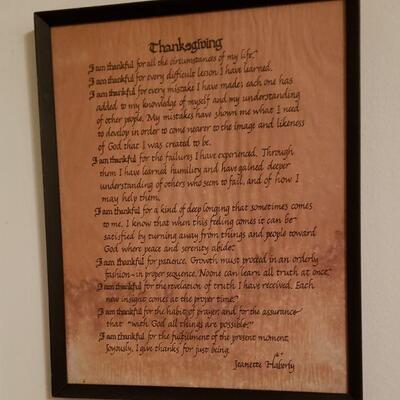 Thanksgiving
I am thankful for all the circumstances of my life.
I am thankful for every difficult lesson I have learned.
I am thankful for every mistake I have made; each one has
added to my knowledge of myself and my understanding
of other people. My mistakes have shown me what I need
to develop in order to come nearer to the image and likeness
of God that I was created to be.
I am thankful for the failures I have experienced. Through
them I have learned humility and have gained deeper
understanding of others who seem to fail, and of how I
may help them.
I am thankful for a kind of deep longing that sometimes comes
to me. I know that when this feeling comes it can be
satisfied by turning away from things and people toward
God where peace and serenity abide.
I am thankful for patience. Growth must proceed in an orderly
fashion - in proper sequence. Noone can learn all truth at once.
I am thankful for the revelation of truth I have received. Each
new insight comes at the proper time.
I am thankful for the habit of prayer, and for the assurance
that "with God all things are possible."
I am thankful for the fulfillment of the present moment.
Joyously, I give thanks for just being.
Jeanette Haberly